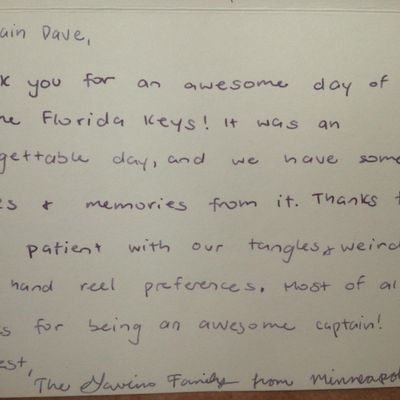 ain Dave,
k you for an awesome day of
he Florida Keys! It was an
gettable day, and we have some
es & memories from it. Thanks f
patient with our tangles & weird
hand reel preferences. Most of al
s for being an awesome captain!
est,
The Family from Minneapol